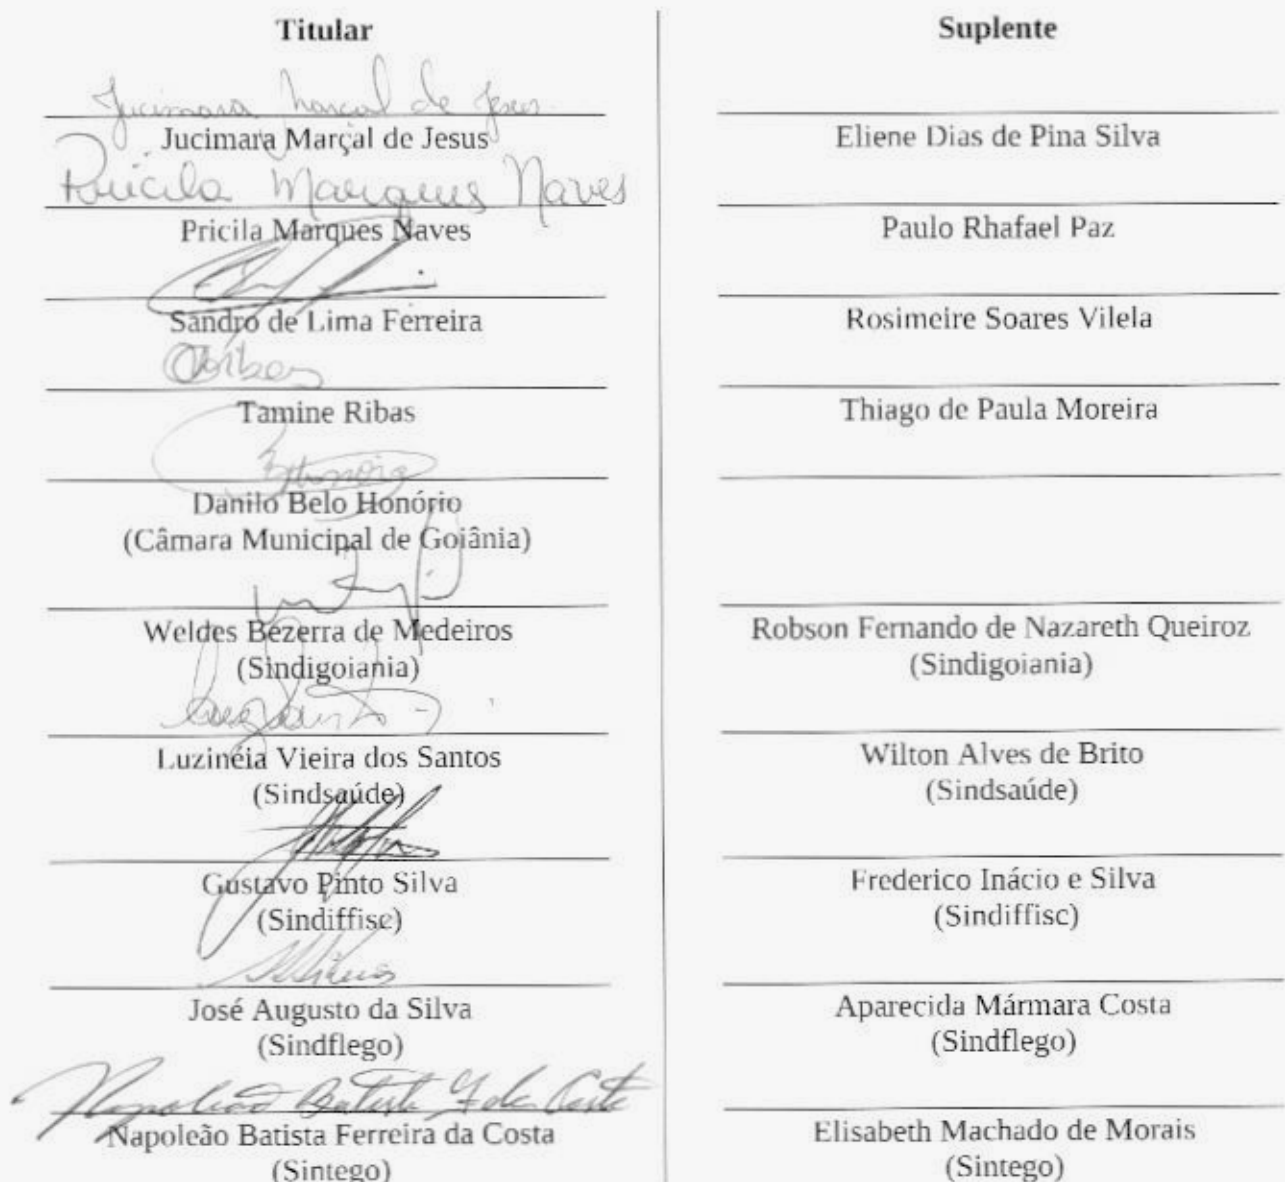 Titular
Jucimara Marçal de Jesus
Jucimara Marçal de Jesus
Pricila Marques Naves
Pricila Marques Naves
Sandro de Lima Ferreira
Ribas
Tamine Ribas
Danilo Belo Honório
(Câmara Municipal de Goiânia)
Weldes Bezerra de Medeiros
(Sindigoiania)
Luzinéia Vieira dos Santos
(Sindsaúde)
Gustavo Pinto Silva
(Sindiffisc)
José Augusto da Silva
(Sindflego)
Napoleão Batista F da Costa
Napoleão Batista Ferreira da Costa
(Sintego)
Suplente
Eliene Dias de Pina Silva
Paulo Rhafael Paz
Rosimeire Soares Vilela
Thiago de Paula Moreira
Robson Fernando de Nazareth Queiroz
(Sindigoiania)
Wilton Alves de Brito
(Sindsaúde)
Frederico Inácio e Silva
(Sindiffisc)
Aparecida Mármara Costa
(Sindflego)
Elisabeth Machado de Morais
(Sintego)